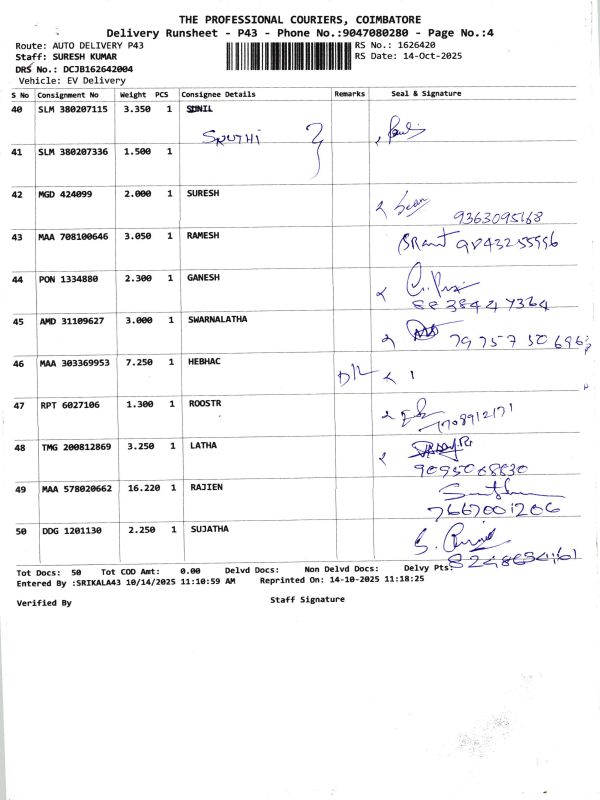 THE PROFESSIONAL COURIERS, COIMBATORE
Delivery Runsheet - P43 - Phone No.:9047080280 - Page No.:4
Route: AUTO DELIVERY P43
RS No.: 1626420
Staff: SURESH KUMAR
RS Date: 14-Oct-2025
DRS No.: DCJB162642004
Vehicle: EV Delivery
S No Consignment No Weight PCS Consignee Details Remarks Seal & Signature
40 SLM 380207115 3.350 1 SUNIL
SRUTHI
41 SLM 380207336 1.500 1
42 MGD 424099 2.000 1 SURESH
9363095168
43 MAA 708100646 3.050 1 RAMESH
9843255596
44 PON 1334880 2.300 1 GANESH
8838447364
45 AMD 31109627 3.000 1 SWARNALATHA
7975750696
46 MAA 303369953 7.250 1 HEBHAC
D/L
47 RPT 6027106 1.300 1 ROOSTR
48 TMG 200812869 3.250 1 LATHA
9095068830
49 MAA 578020662 16.220 1 RAJIEN
7667001206
50 DDG 1201130 2.250 1 SUJATHA
Tot Docs: 50 Tot COD Amt: 0.00 Delvd Docs: Non Delvd Docs: Delvy Pts:
Entered By :SRIKALA43 10/14/2025 11:10:59 AM Reprinted On: 14-10-2025 11:18:25
Verified By Staff Signature